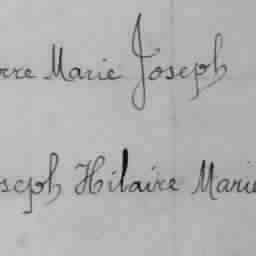 rre Marie Joseph
seph Hilaire Marie